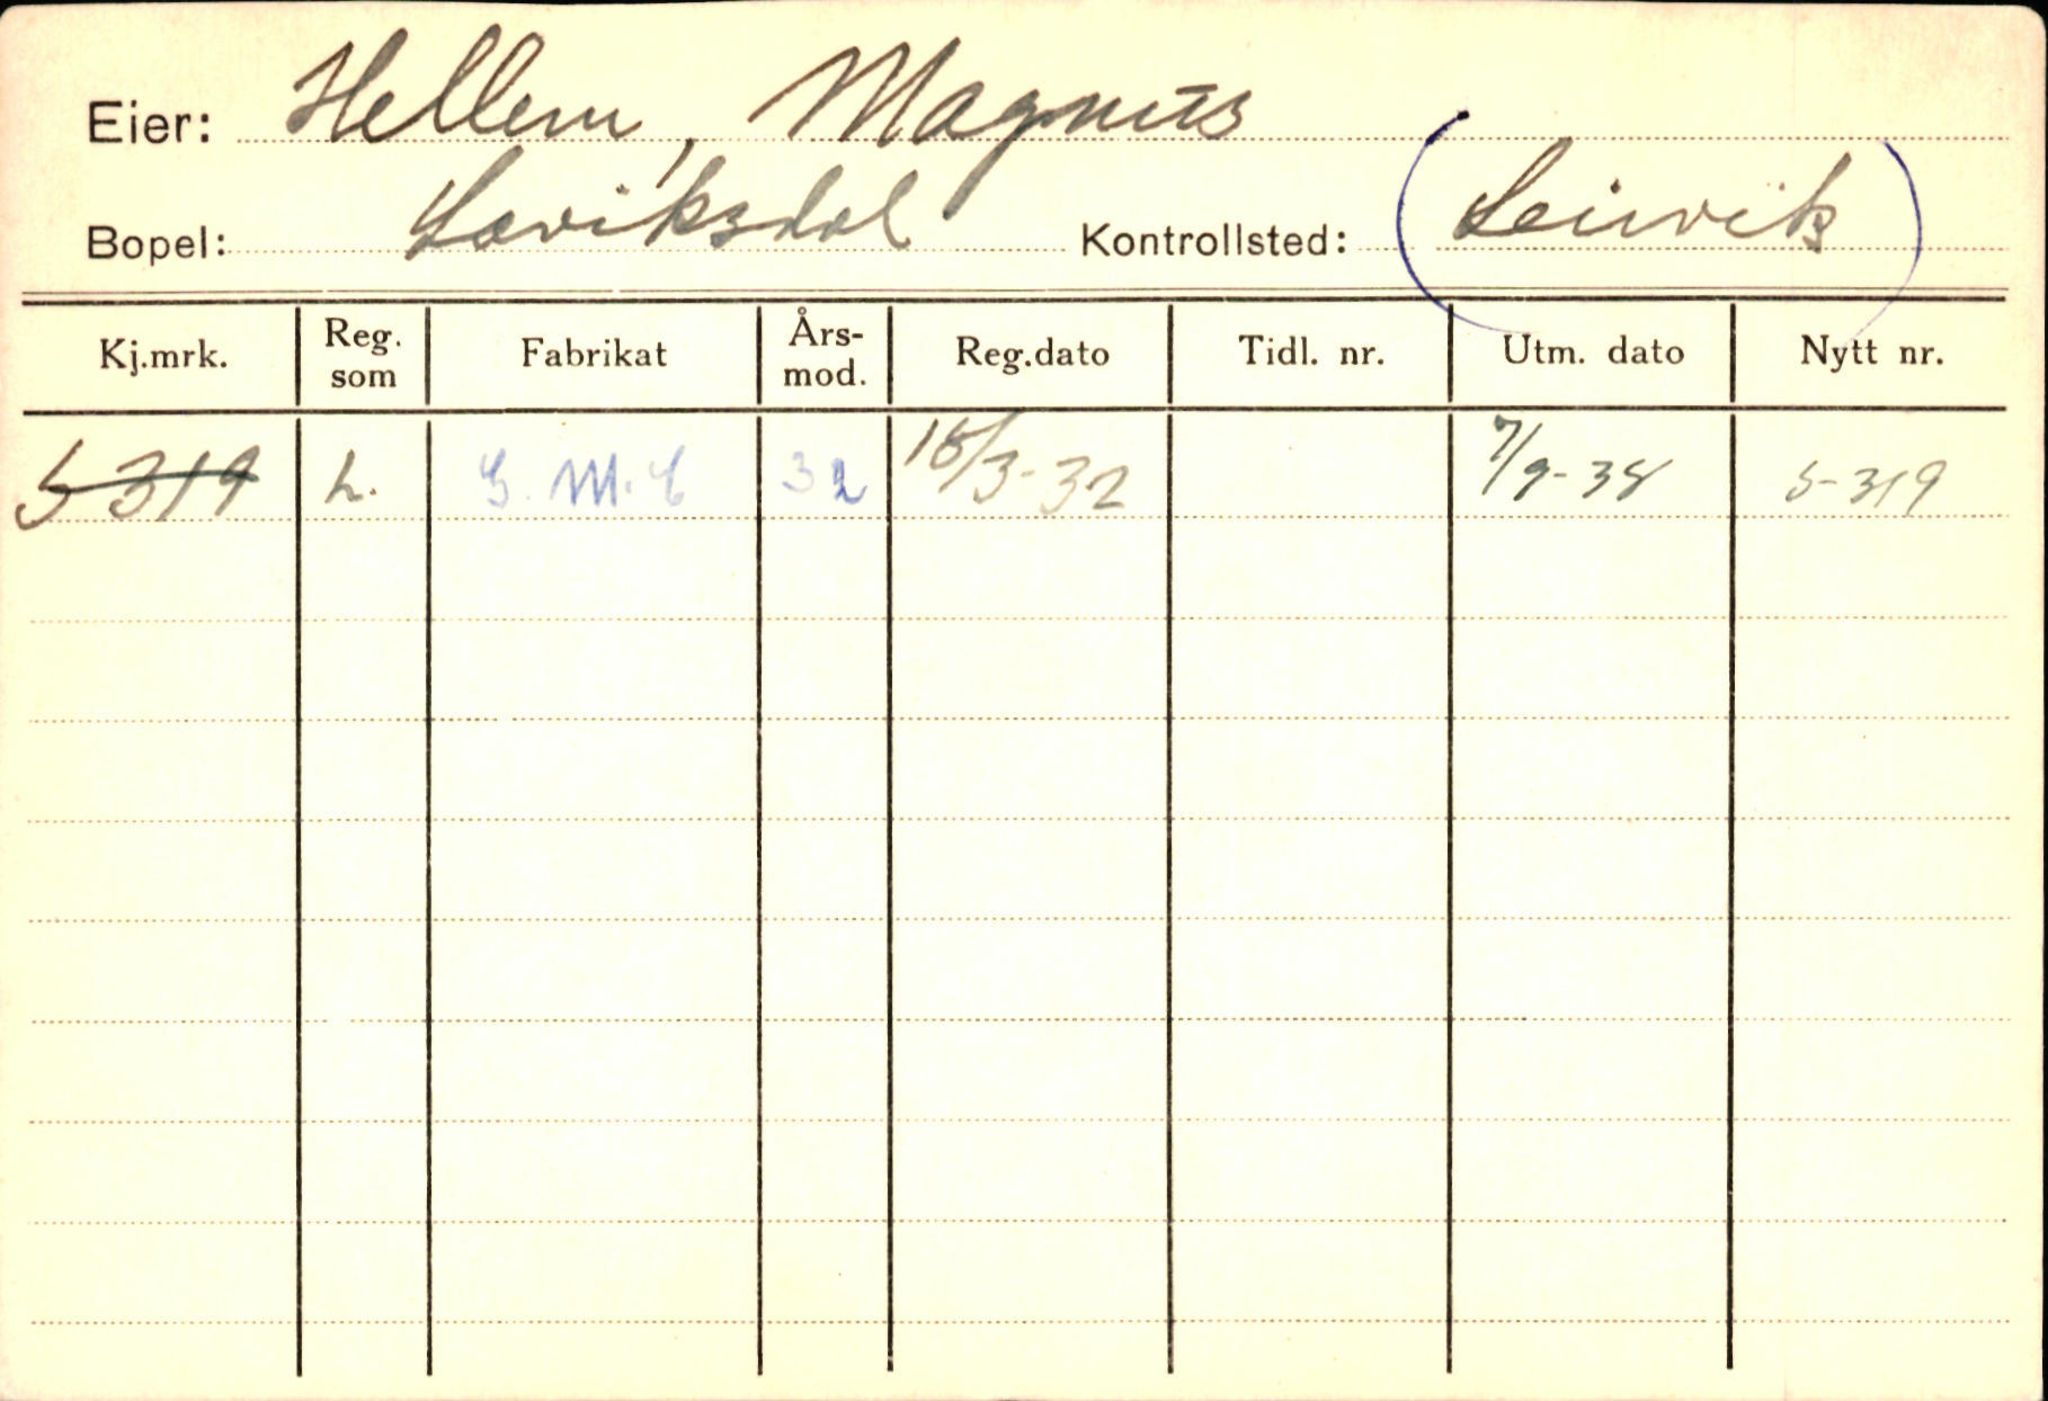 Eier: Hellem, Magnus
Bopel: Laviksdal Kontrollsted: (Leirvik)
Kj.mrk. Reg. som Fabrikat Års-mod. Reg.dato Tidl. nr. Utm. dato Nytt nr.
S-319 L. G.M.C 32 18/3-32 7/9-38 S-319